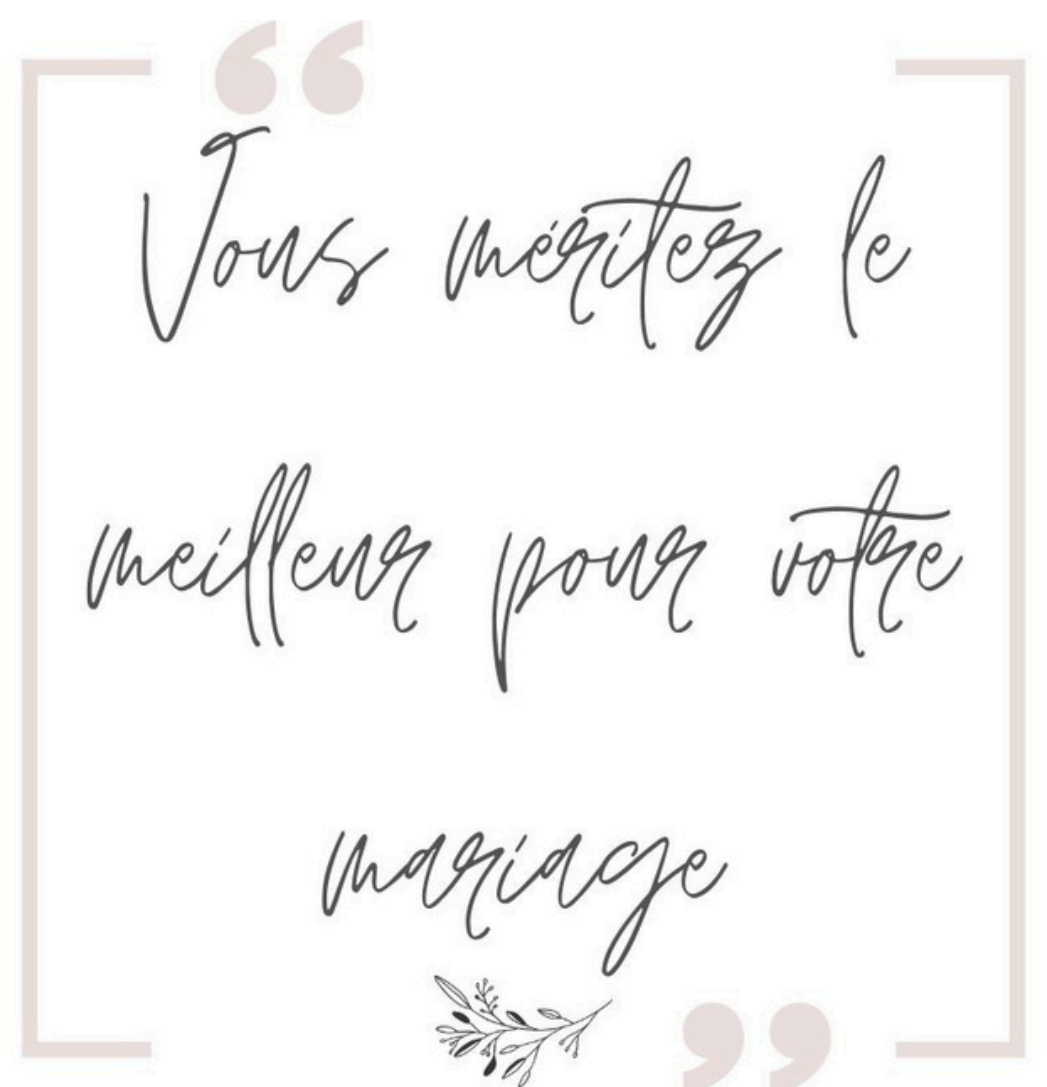 “
Vous méritez le
meilleur pour votre
mariage
”